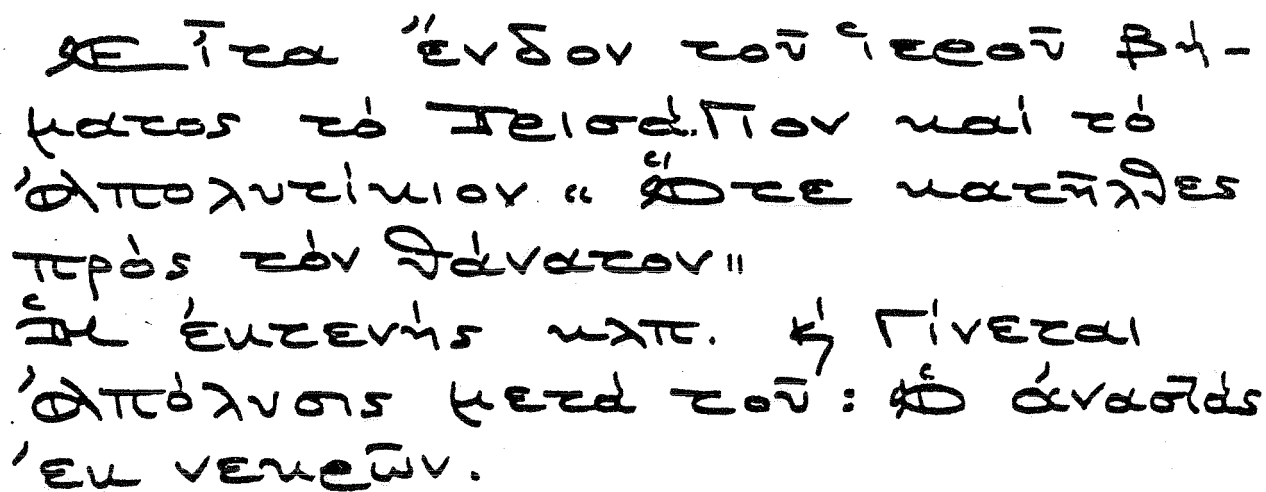 Εἶτα ἔνδον τοῦ ἱεροῦ Βή-
ματος τό Τρισάγιον καί τό
Ἀπολυτίκιον « Ὅτε κατῆλθες
πρός τόν θάνατον "
Ἡ ἐκτενής κλπ. ϗ γίνεται
Ἀπόλυσις μετά τοῦ : Ὁ ἀναστάς
ἐκ νεκρῶν.